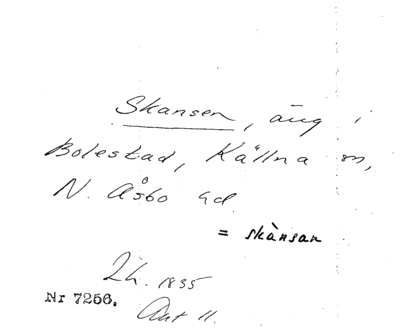 Skansen, äng i
Bolestad, Källna sn,
N. Åsbo hd.
= skànsan
Lh. 1835
Nr 7256. Akt 11.